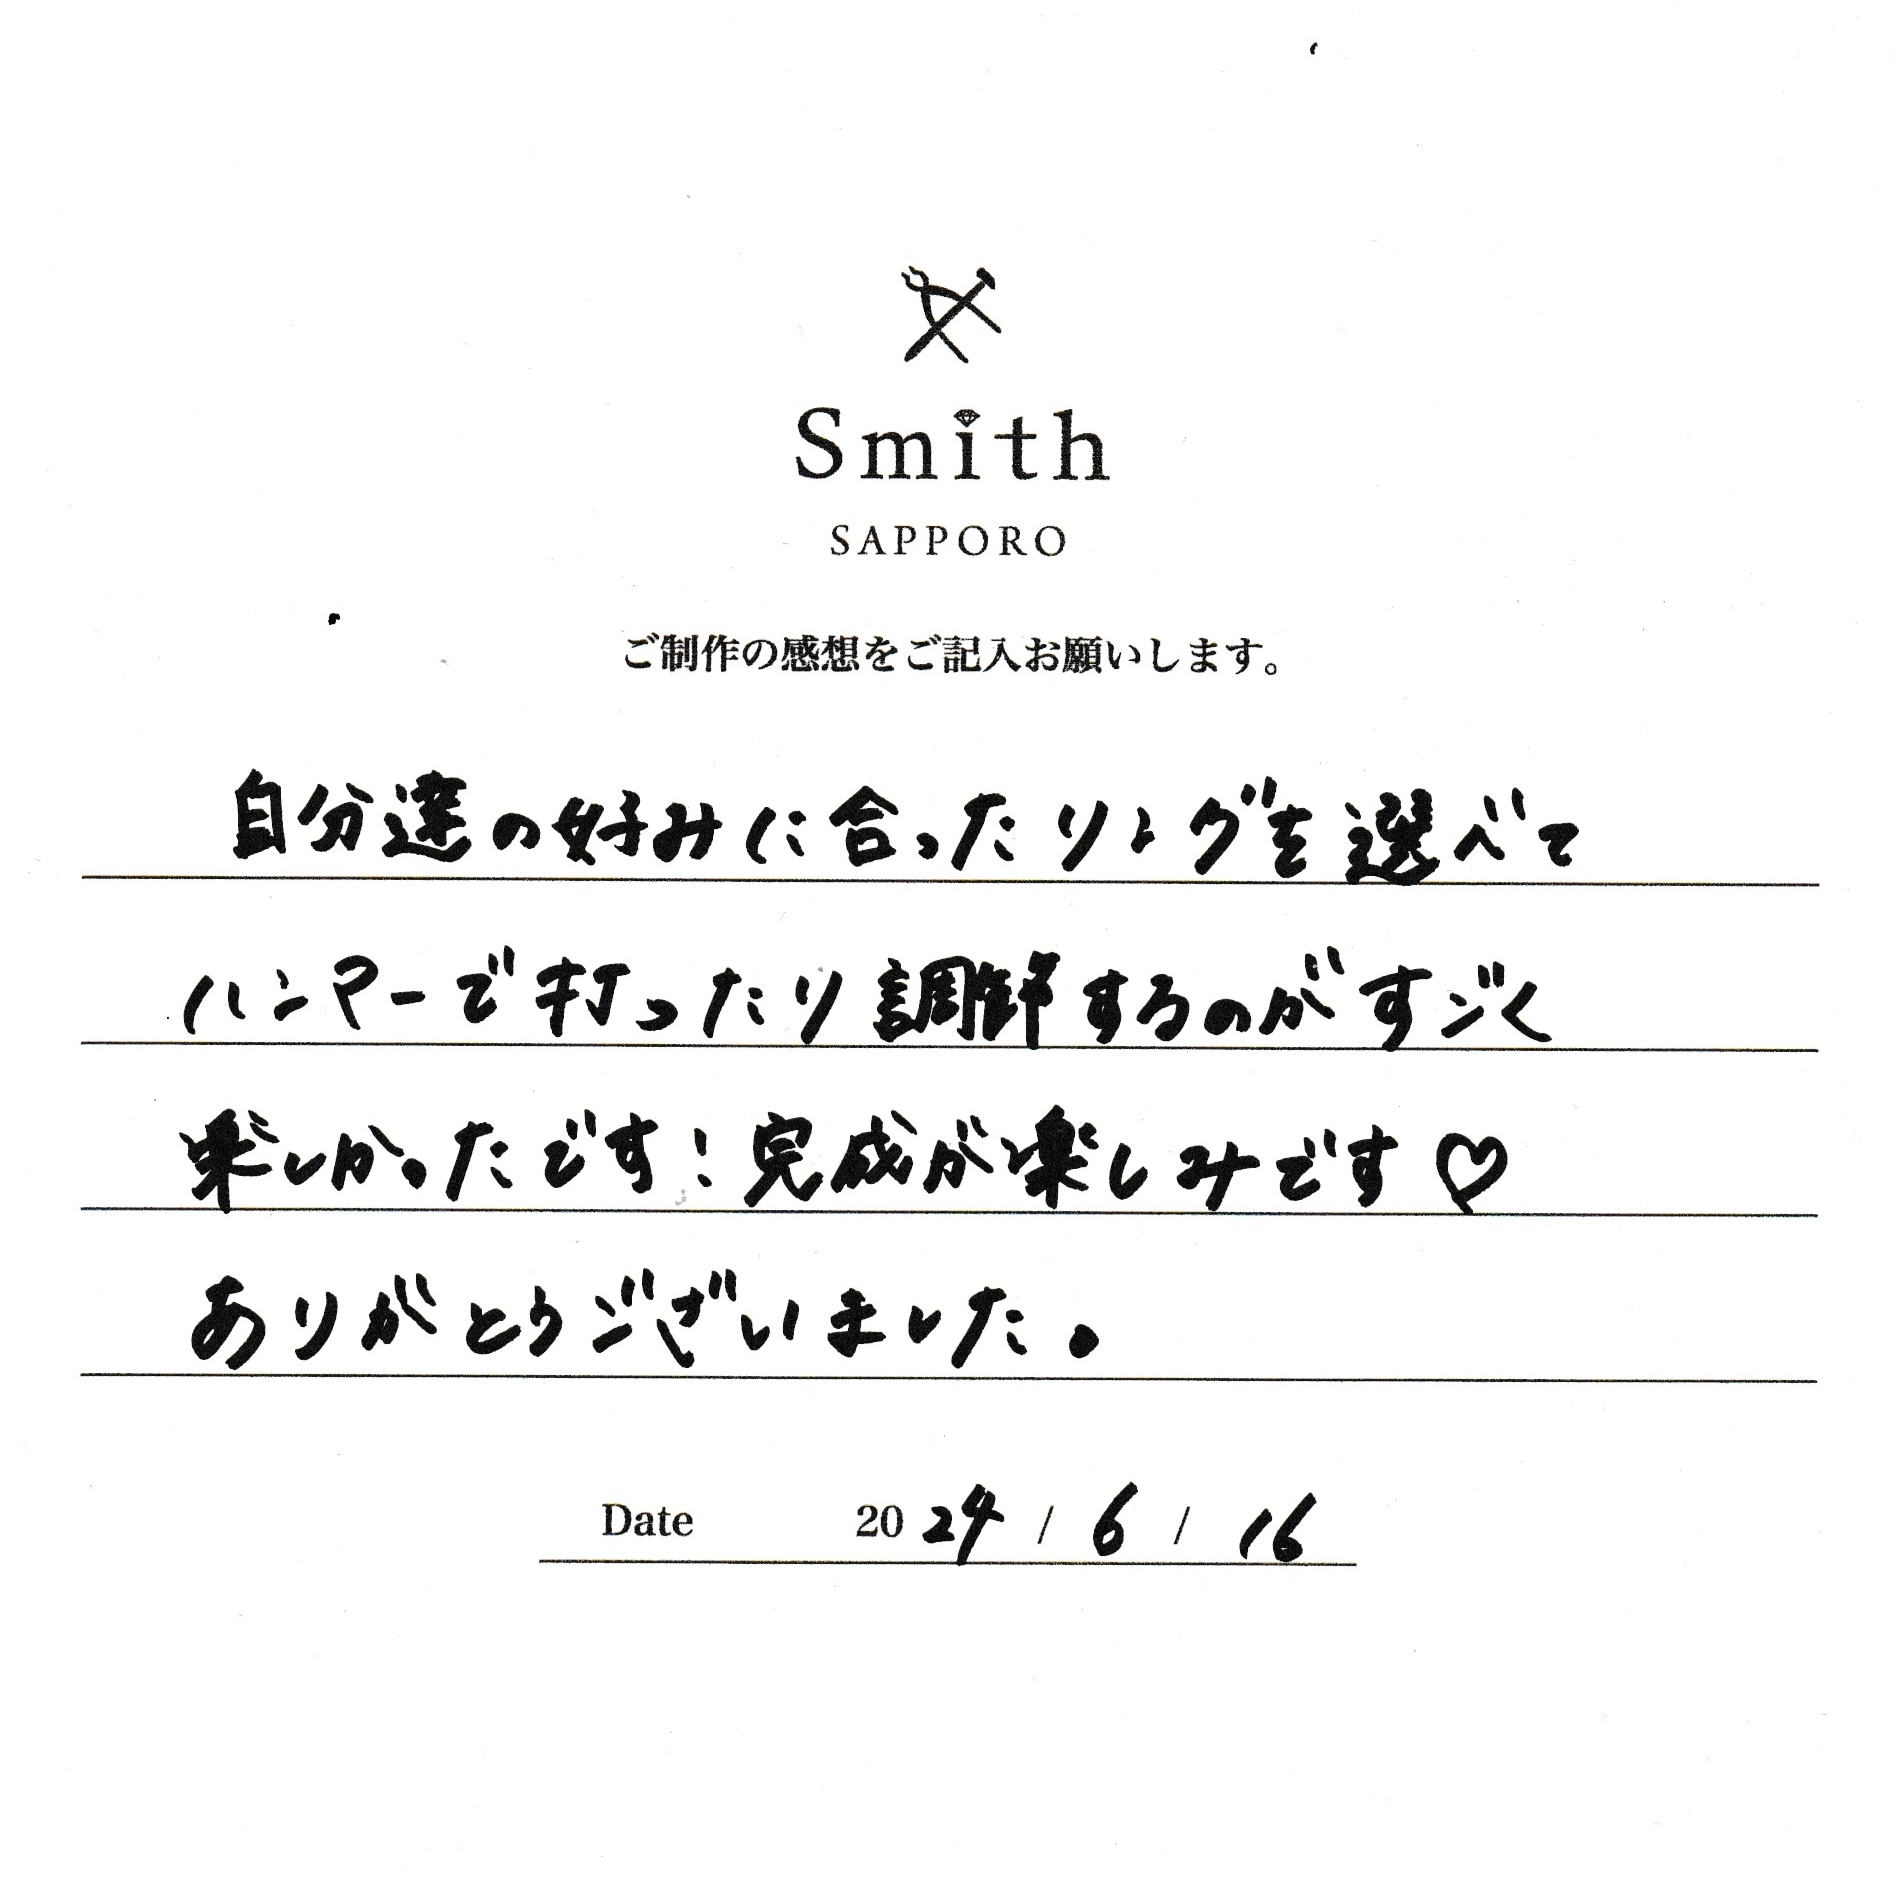 Smith
SAPPORO
ご制作の感想をご記入お願いします。
自分達の好みに合ったリングを選べて
ハンマーで打ったり調節するのがすごく
楽しかったです！完成が楽しみです♡
ありがとうございました。
Date 2024 / 6 / 16